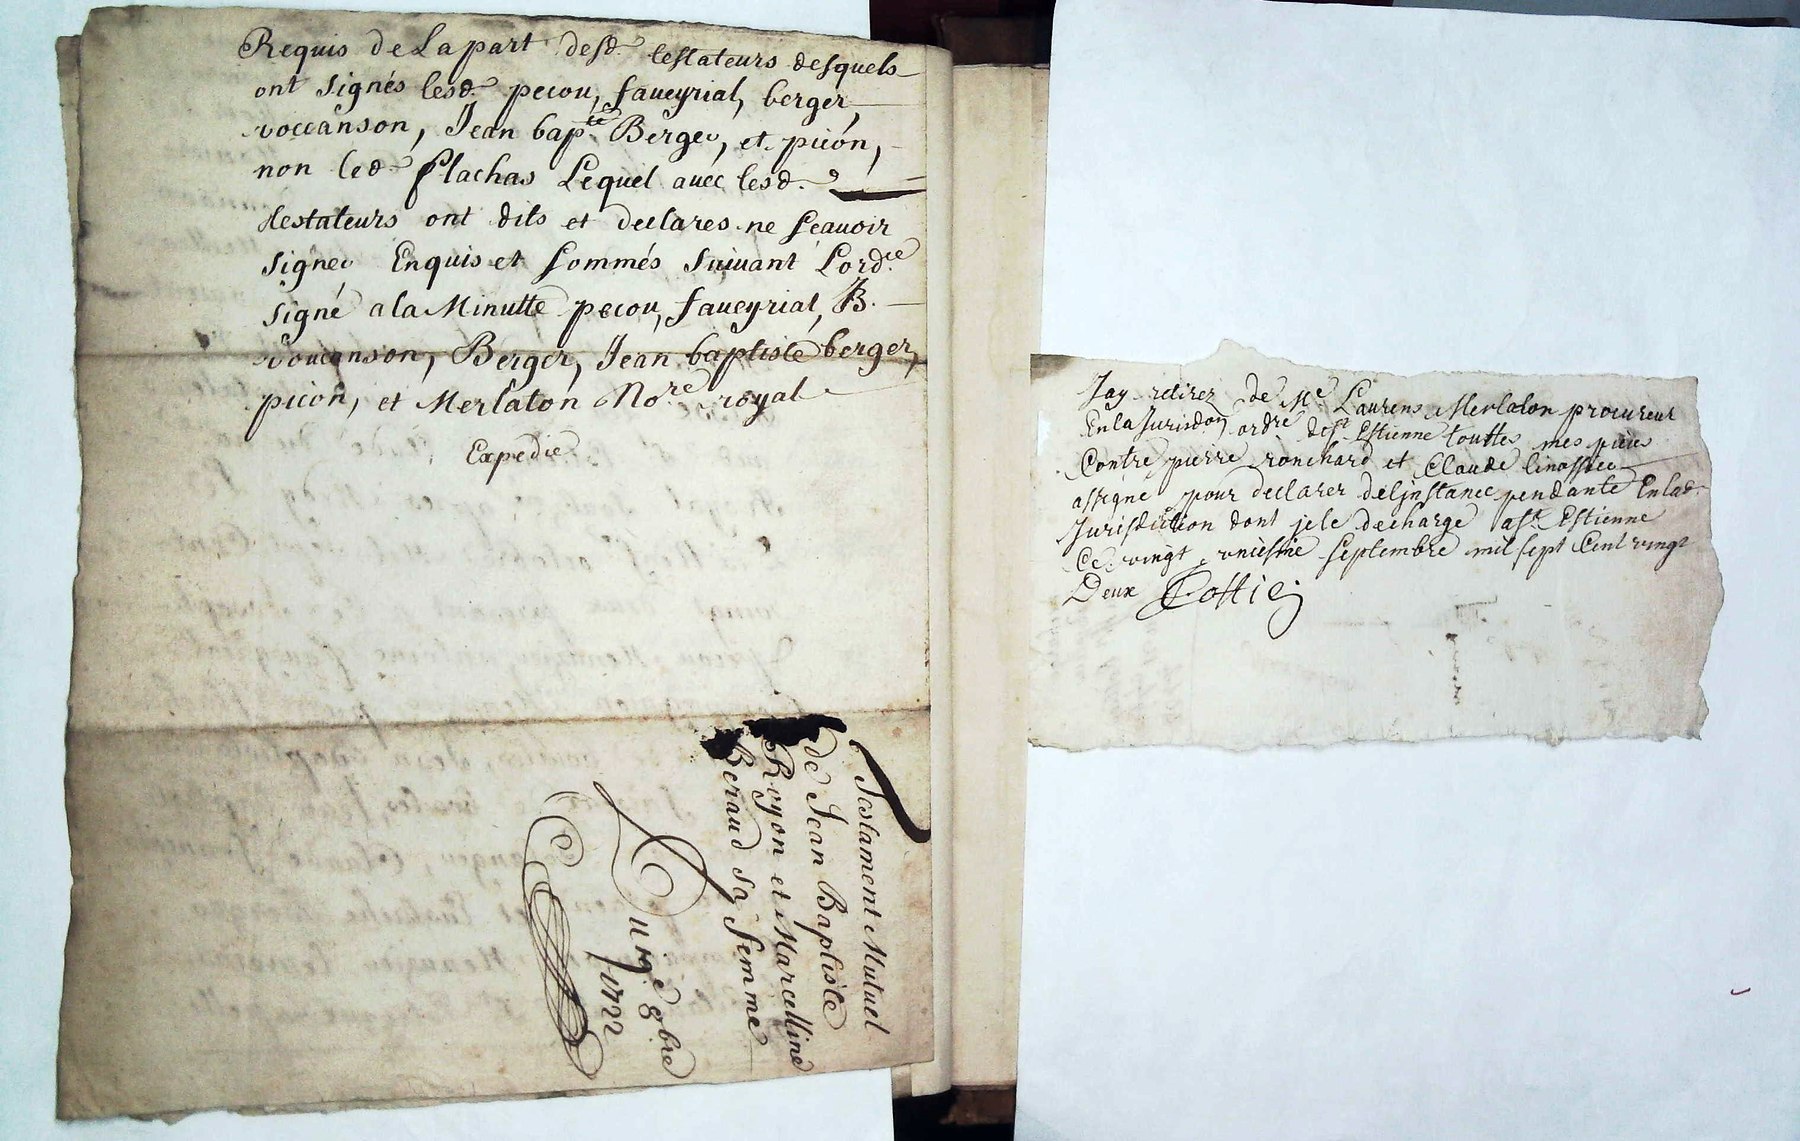 Requis de La part desd. testateurs desquels
ont signés lesd. pecou, faueyrial, berger,
voccanson, Jean bapte. Berger, et picon,
non led. flachas Lequel auec lesd.
testateurs ont dits et declares ne sçauoir
signer Enquis et sommés suiuant Lordce.
signé a la Minutte pecou, faueyrial, B.
voucanson, Berger, Jean baptiste berger,
picon, et Merlaton Nore. royal
Expedie
Testament Mutuel
de Jean Baptiste
Royon et Marcelline
Beraud sa femme
Du 8bre
1722
Jay retirez de Me Laurens Merlaton procureur
En la Jurisdon. ordre de st Estienne touttes mes pieces
Contre pierre ronchard et Claude linossier
assigné pour declarer de linstance pendante En lad.
Jurisdiction dont je le decharge a st Estienne
Ce vingt vniesme septembre mil sept Cent vingt
Deux